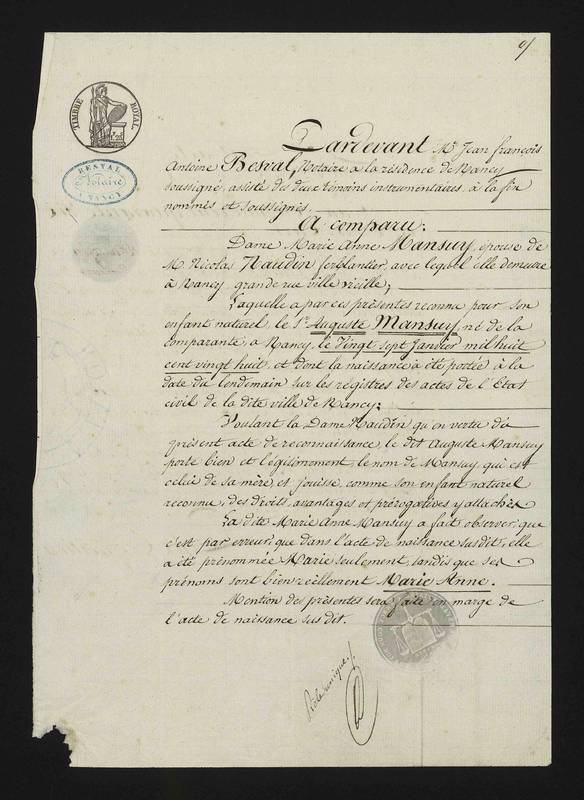 9/
TIMBRE ROYAL
BESVAL
Notaire
NANCY
Pardevant Me Jean françois
Antoine Besval, Notaire à la résidence de Nancy
soussigné, assisté des deux témoins instrumentaires, à la fin
nommés et soussignés.
A comparu:
Dame Marie Anne Mansuy, épouse de
M. Nicolas Naudin ferblantier, avec lequel elle demeure
à Nancy, grande rue ville vieille;
Laquelle a par ces présentes reconnu pour son
enfant naturel, le Sr Auguste Mansuy, né de la
comparante, à Nancy, le vingt sept Janvier mil huit
cent vingt huit, et dont la naissance a été portée à la
date du lendemain sur les régistres des actes de l'Etat
civil de la dite ville de Nancy;
Voulant la Dame Naudin qu'en vertu du
présent acte de reconnaissance, le dit Auguste Mansuy
porte bien et légitimement, le nom de Mansuy, qui est
celui de sa mère, et jouisse, comme son enfant naturel
reconnu, des droits, avantages et prérogatives y attachés.
La dite Marie Anne Mansuy a fait observer, que
c'est par erreur, que dans l'acte de naissance susdit, elle
a été prénommée Marie seulement, tandis que ses
prénoms sont bien réellement Marie Anne.
Mention des présentes sera faite en marge de
l'acte de naissance sus dit.
Rôle unique /.